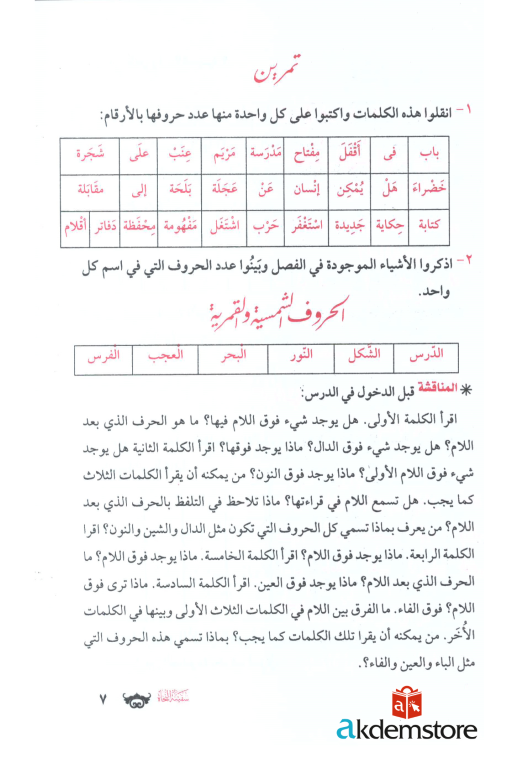 تمرين
١- انقلوا هذه الكلمات واكتبوا على كل واحدة منها عدد حروفها بالأرقام:
باب فى أَقْفَلَ مِفْتاح مَدْرَسة مَرْيَم عِنَبْ علَى شَجَرة
خَضْراءَ هَلْ يُمْكِن إنْسان عَنْ عَجَلَة بَلَحَة إلى مقَابَلة
كتابة حِكاية جَديدة اسْتَغْفَر حَرْب اشْتَغَل مَفْهُومة مِحْفَظة دَفاتر أقْلام
٢- اذكروا الأشياء الموجودة في الفصل وبَينُوا عدد الحروف التي في اسم كل
واحد.
الحروف الشمسية والقمرية
الدّرس الشّكل النّور الْبحر الْعجب الْفرس
* المناقشة قبل الدخول في الدرس:
اقرأ الكلمة الأولى. هل يوجد شيء فوق اللام فيها؟ ما هو الحرف الذي بعد
اللام؟ هل يوجد شيء فوق الدال؟ ماذا يوجد فوقها؟ اقرأ الكلمة الثانية هل يوجد
شيء فوق اللام الأولى؟ ماذا يوجد فوق النون؟ من يمكنه أن يقرأ الكلمات الثلاث
كما يجب. هل تسمع اللام في قراءتها؟ ماذا تلاحظ في التلفظ بالحرف الذي بعد
اللام؟ من يعرف بماذا تسمي كل الحروف التي تكون مثل الدال والشين والنون؟ اقرا
الكلمة الرابعة. ماذا يوجد فوق اللام؟ اقرأ الكلمة الخامسة. ماذا يوجد فوق اللام؟ ما
الحرف الذي بعد اللام؟ ماذا يوجد فوق العين. اقرأ الكلمة السادسة. ماذا ترى فوق
اللام؟ فوق الفاء. ما الفرق بين اللام في الكلمات الثلاث الأولى وبينها في الكلمات
الأُخَر. من يمكنه أن يقرا تلك الكلمات كما يجب؟ بماذا تسمي هذه الحروف التي
مثل الباء والعين والفاء؟.
سفينة النجاة ٧
a
akdemstore